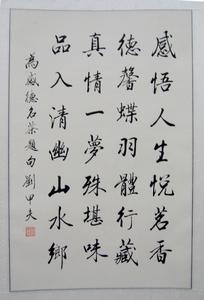 感悟人生悦茗香
德馨蝶羽體行藏
真情一夢殊堪味
品入清幽山水鄉
為感德名茶題句 劉甲夫